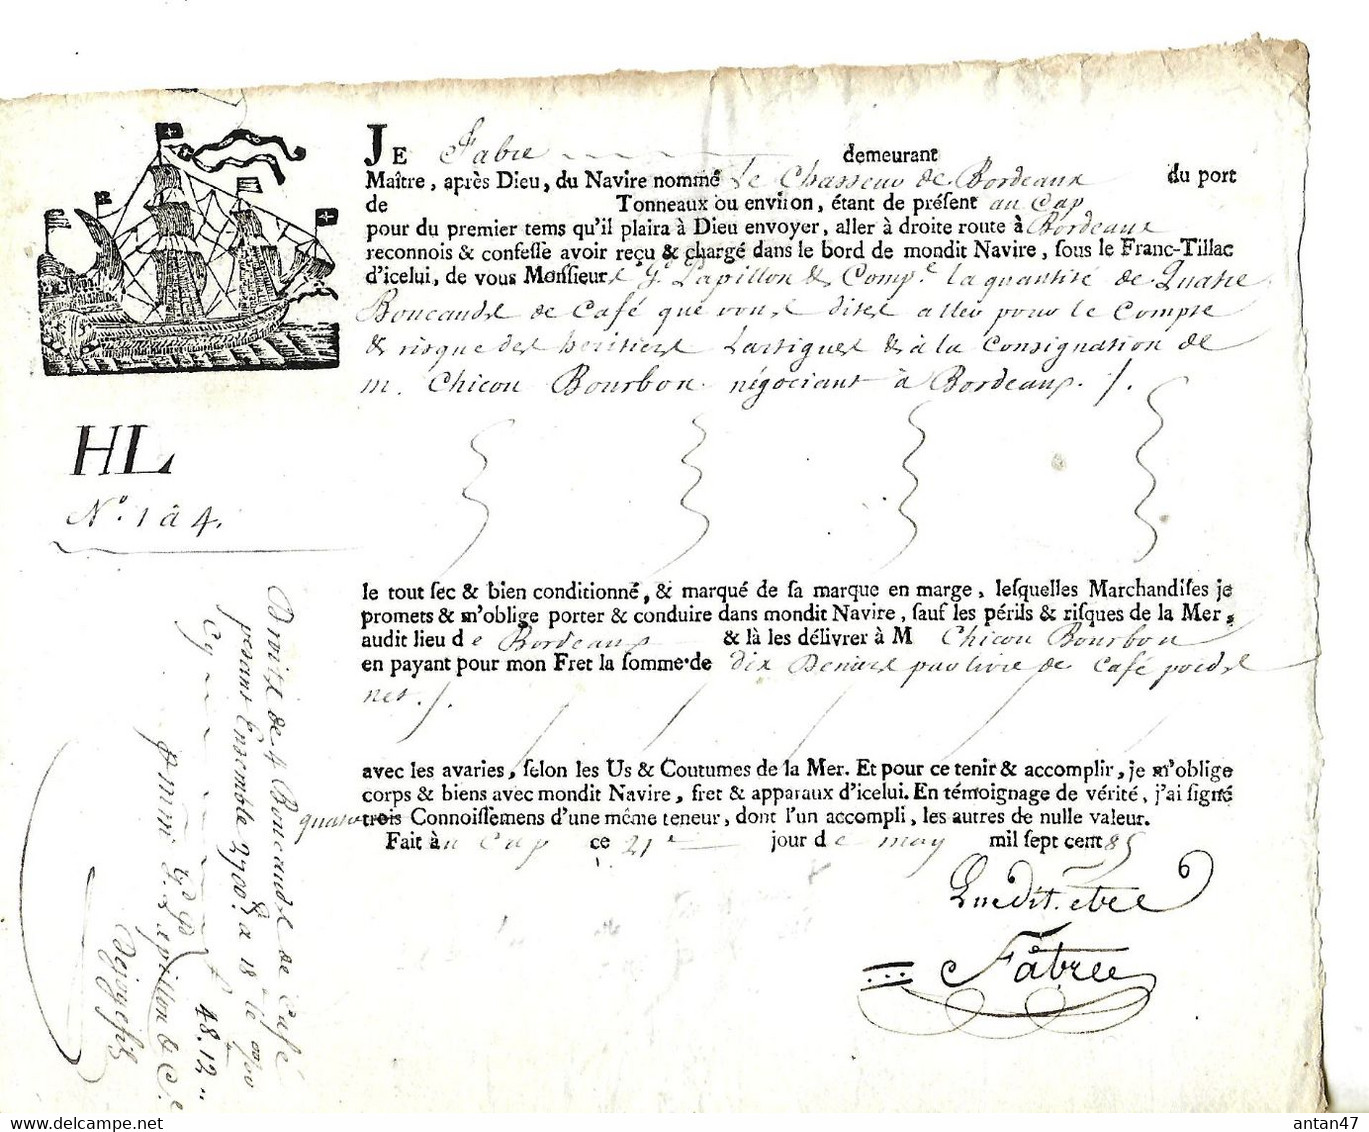 JE Fabre demeurant
Maître, après Dieu, du Navire nommé le Chasseur de Bordeaux du port
de Tonneaux ou environ, étant de présent au Cap
pour du premier tems qu'il plaira à Dieu envoyer, aller à droite route à Bordeaux
reconnois & confesse avoir reçu & chargé dans le bord de mondit Navire, sous le Franc-Tillac
d'icelui, de vous Monsieurs Papillon & Comp.e la quantité de Quatre
Boucauds de Café que vous dites aller pour le Compte
& risque des heritiers Lartigues & à la Consignation de
m. Chicou Bourbon négociant à Bordeaux ./.
HL
N.o 1 à 4.
le tout sec & bien conditionné, & marqué de sa marque en marge, lesquelles Marchandises je
promets & m'oblige porter & conduire dans mondit Navire, sauf les périls & risques de la Mer,
audit lieu de Bordeaux & là les délivrer à M Chicou Bourbon
en payant pour mon Fret la somme de dix Deniers par livre de Café poids
net ./.
avec les avaries, selon les Us & Coutumes de la Mer. Et pour ce tenir & accomplir, je m'oblige
corps & biens avec mondit Navire, fret & apparaux d'icelui. En témoignage de vérité, j'ai signé
quatre trois Connoissemens d'une même teneur, dont l'un accompli, les autres de nulle valeur.
Fait au Cap ce 21e jour de may mil sept cent 85
Que dit etre
Fabre
Droits de 4 Boucauds de Café
pesant Ensemble 2700 à 18
48.12
Papillon & C.e
antan47